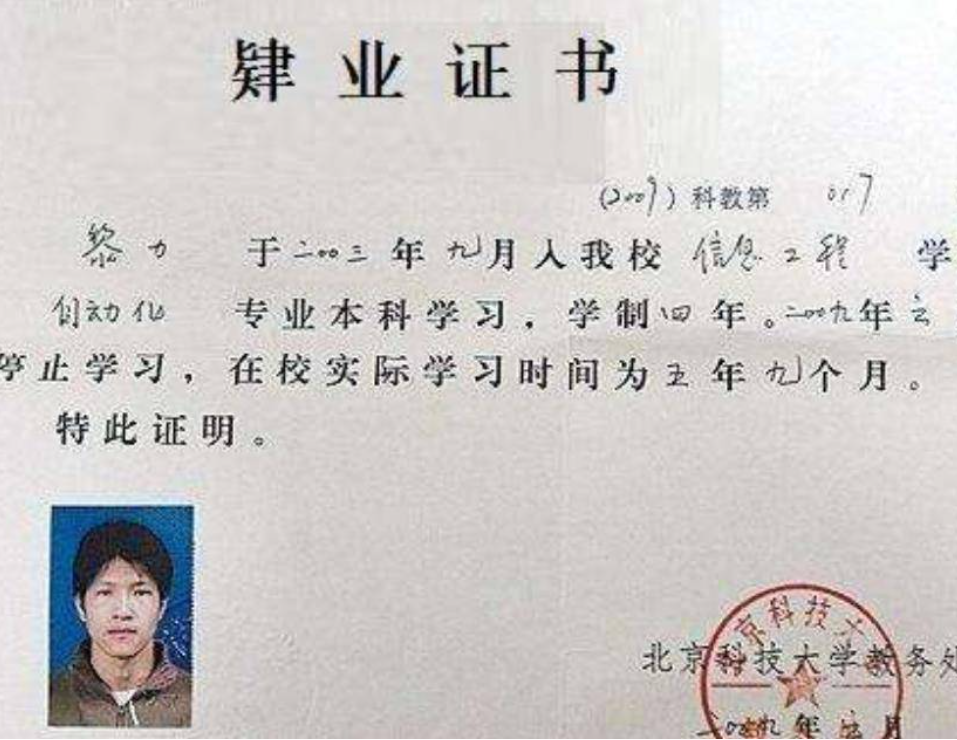 肄业证书
(2009) 科教第 017
黎力 于二〇〇三年九月入我校 信息工程 学
自动化 专业本科学习，学制四年。二〇〇九年六
停止学习，在校实际学习时间为五年九个月。
特此证明。
京科技大
北京科技大学教务处
二〇〇九年六月